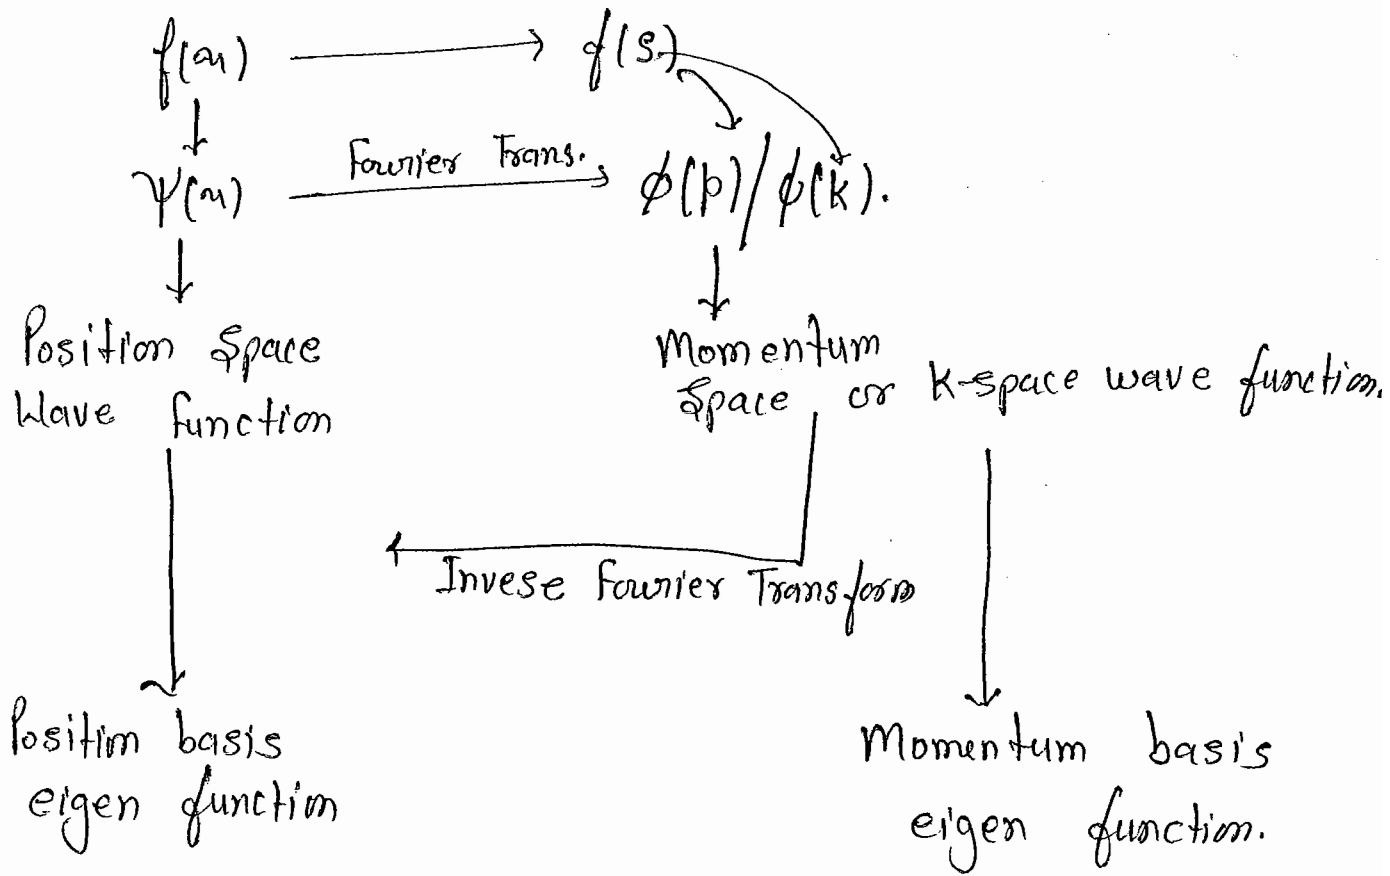 f(x) → f(s)
ψ(x) Fourier Trans. → φ(p)/φ(k).
Position Space
Wave function
Momentum
Space or k-space wave function.
Invese Fourier Transform
Position basis
eigen function
Momentum basis
eigen function.